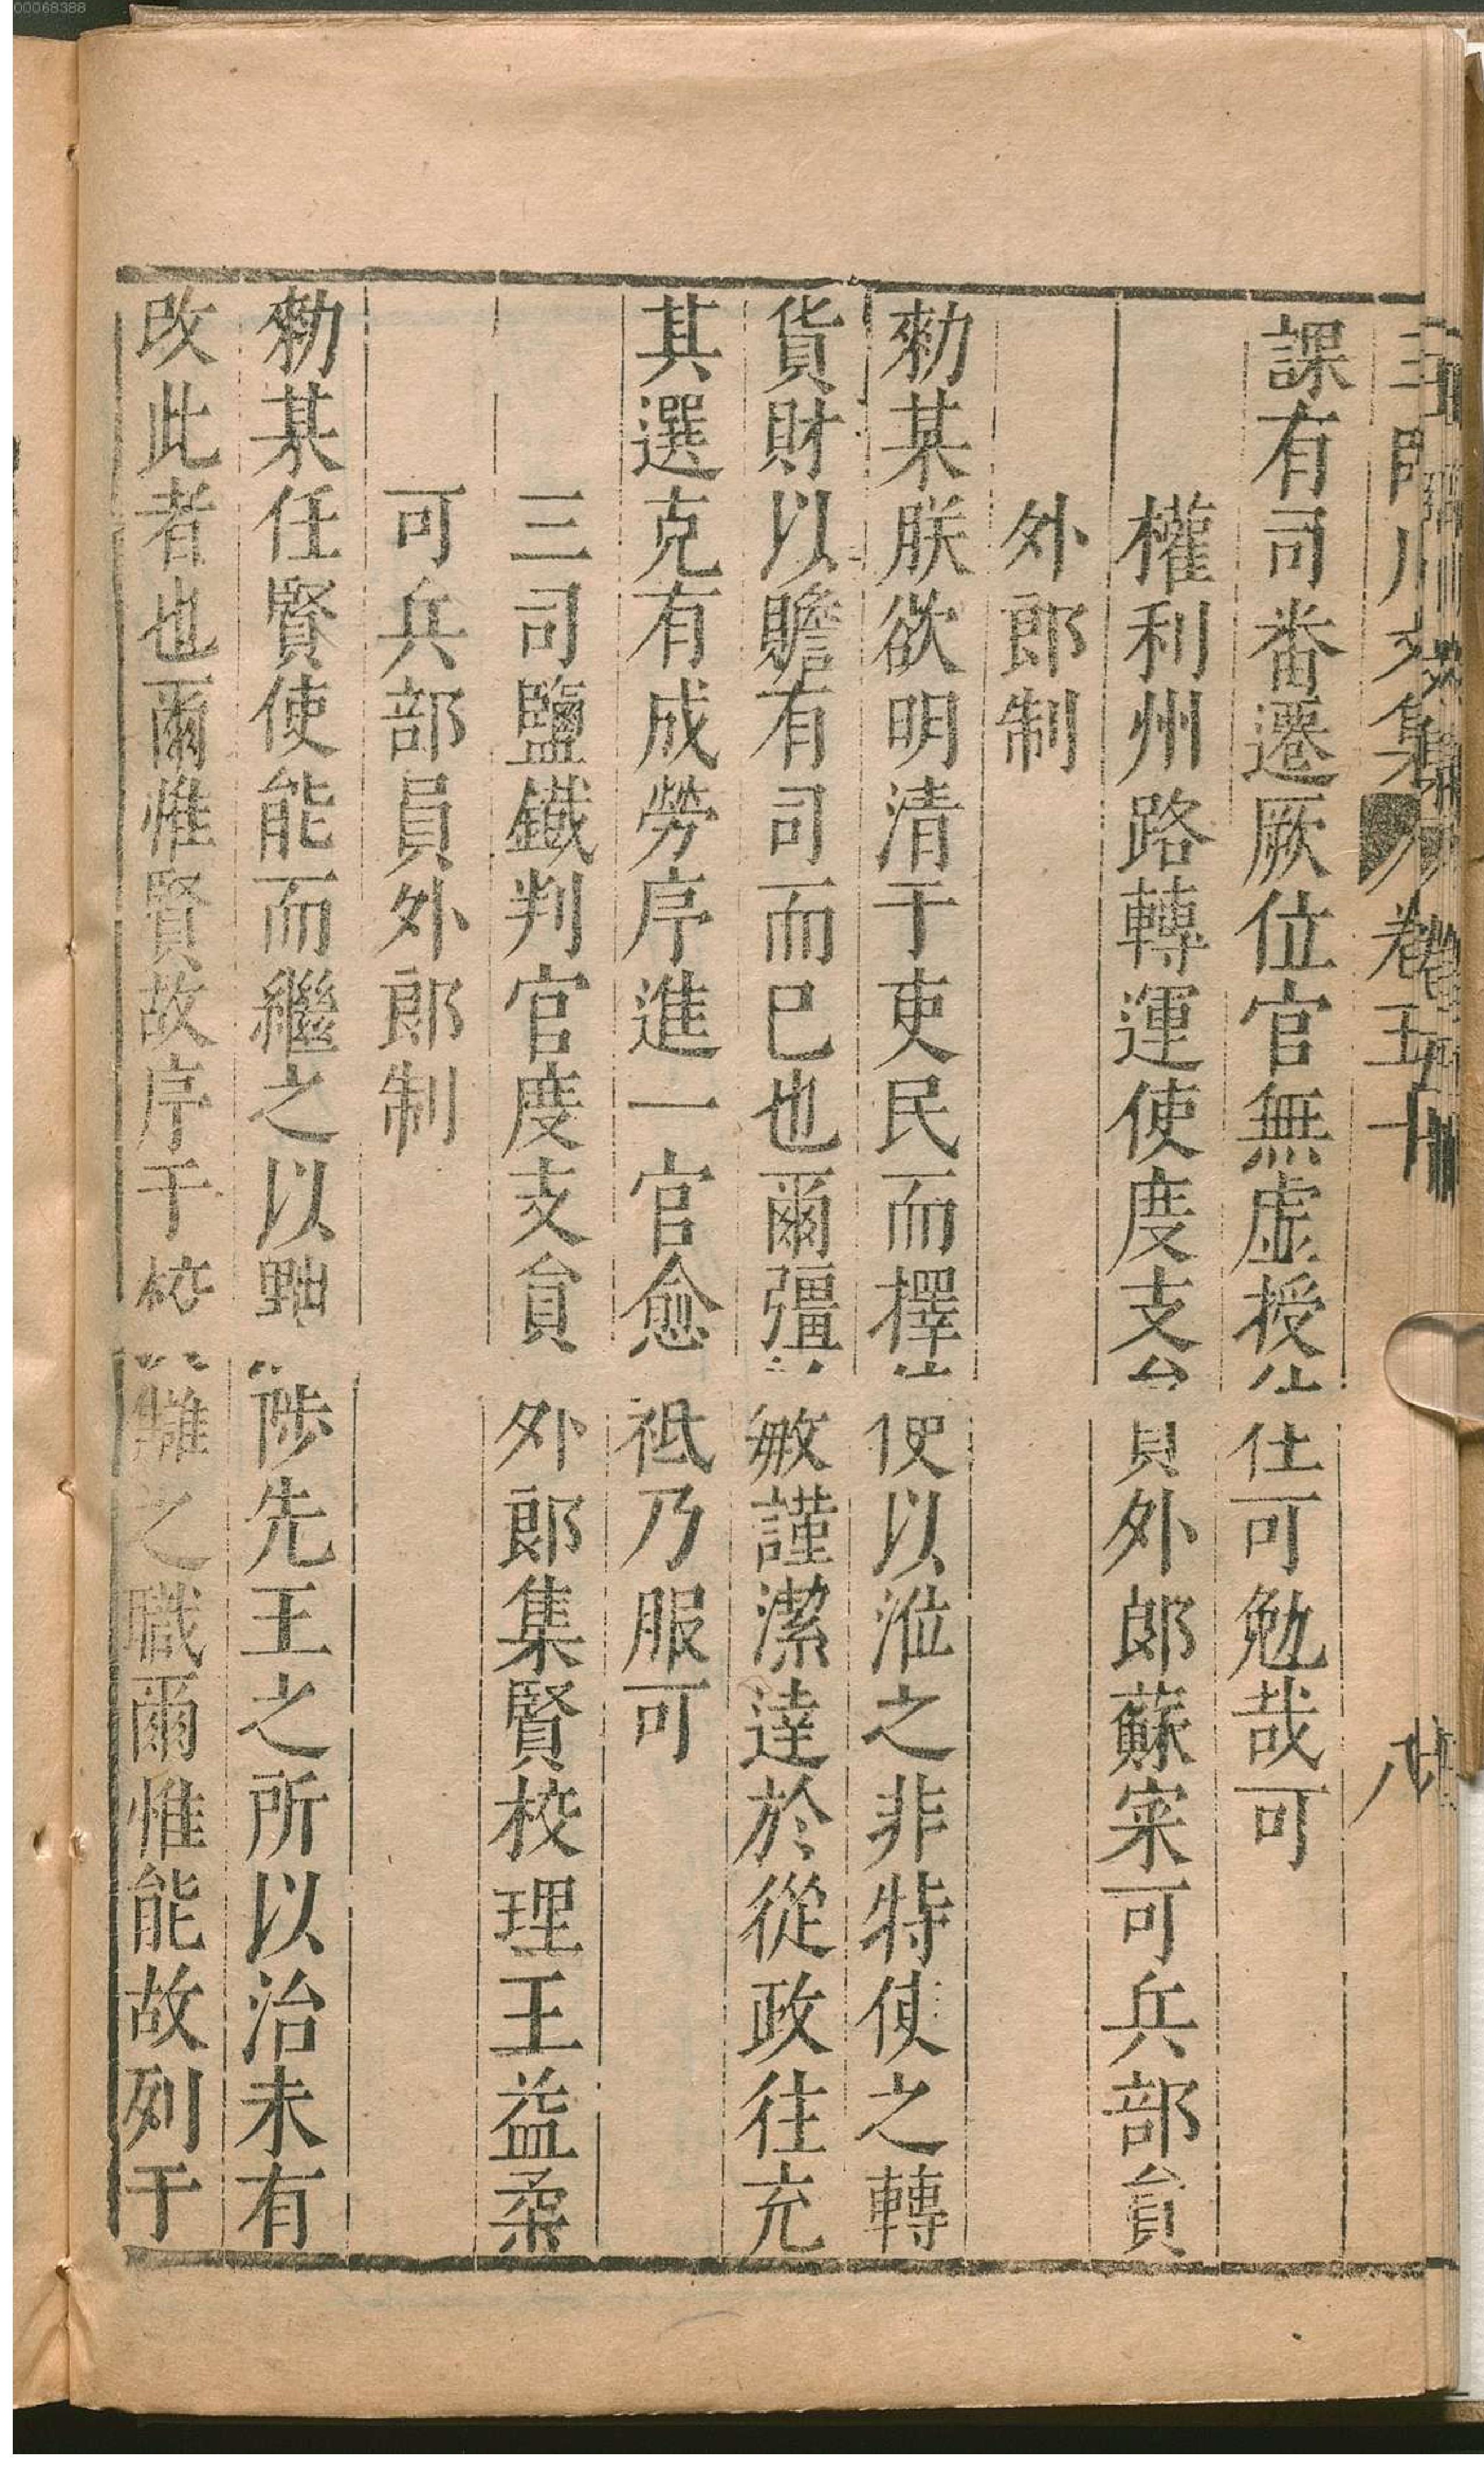 00068388
王臨川文集 卷五十 八
課有司番遷厥位官無虛授仕可勉哉可
權利州路轉運使度支員外郎蘇寀可兵部貟
外郎制
勑某朕欲明清于吏民而擇使以涖之非特使之轉
貨財以贍有司而巳也爾彊敏謹潔達於從政往充
其選克有成勞序進一官愈祗乃服可
三司鹽鐵判官度支貟外郎集賢校理王益柔
可兵部員外郎制
勑某任賢使能而繼之以黜陟先王之所以治未有
改此者也爾惟賢故序于校讎之職爾惟能故列于